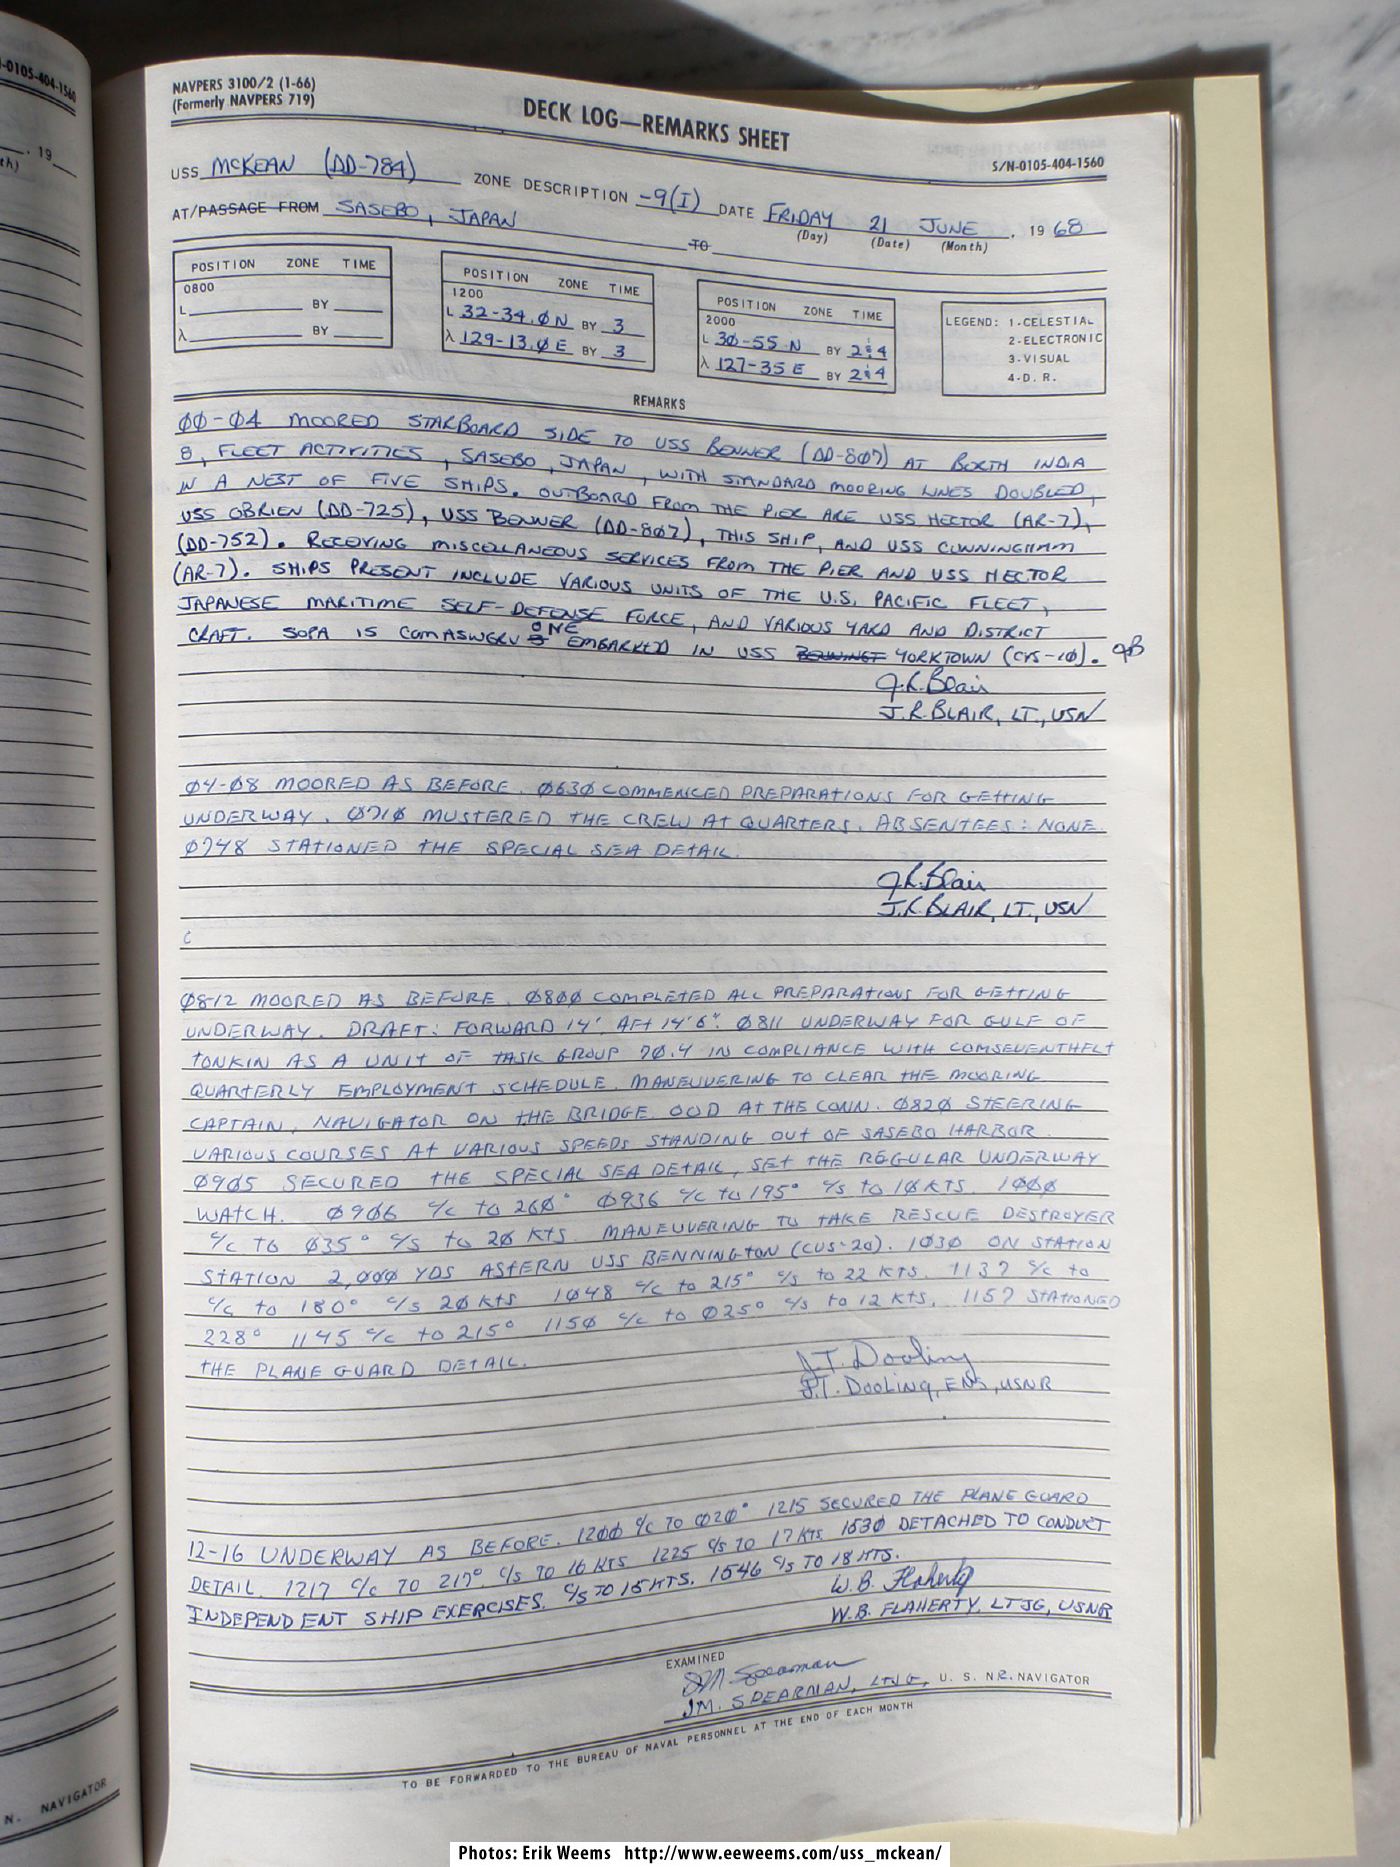 -0105-404-1560
, 19
th)
NAVPERS 3100/2 (1-66)
(Formerly NAVPERS 719)
DECK LOG—REMARKS SHEET
S/N-0105-404-1560
USS MCKEAN (DD-784) ZONE DESCRIPTION -9(I) DATE FRIDAY 21 JUNE , 19 68
(Day) (Date) (Month)
AT/PASSAGE FROM SASEBO, JAPAN TO
POSITION ZONE TIME
0800
L BY
λ BY
POSITION ZONE TIME
1200
L 32-34.0 N BY 3
λ 129-13.0 E BY 3
POSITION ZONE TIME
2000
L 30-55 N BY 2&4
λ 127-35 E BY 2&4
LEGEND: 1-CELESTIAL
2-ELECTRONIC
3-VISUAL
4-D. R.
REMARKS
00-04 MOORED STARBOARD SIDE TO USS BENNER (DD-807) AT BERTH INDIA
8, FLEET ACTIVITIES, SASEBO, JAPAN, WITH STANDARD MOORING LINES DOUBLED,
IN A NEST OF FIVE SHIPS. OUTBOARD FROM THE PIER ARE USS HECTOR (AR-7),
USS OBRIEN (DD-725), USS BENNER (DD-807), THIS SHIP, AND USS CUNNINGHAM
(DD-752). RECEIVING MISCELLANEOUS SERVICES FROM THE PIER AND USS HECTOR
(AR-7). SHIPS PRESENT INCLUDE VARIOUS UNITS OF THE U.S. PACIFIC FLEET,
JAPANESE MARITIME SELF-DEFENSE FORCE, AND VARIOUS YARD AND DISTRICT
CRAFT. SOPA IS COMASWGRU ONE EMBARKED IN USS YORKTOWN (CVS-10). JB
J.R. Blair
J.R. BLAIR, LT., USN
04-08 MOORED AS BEFORE. 0630 COMMENCED PREPARATIONS FOR GETTING
UNDERWAY. 0710 MUSTERED THE CREW AT QUARTERS. ABSENTEES: NONE.
0748 STATIONED THE SPECIAL SEA DETAIL.
J.R. Blair
J.R. BLAIR, LT., USN
C
0812 MOORED AS BEFORE. 0800 COMPLETED ALL PREPARATIONS FOR GETTING
UNDERWAY. DRAFT: FORWARD 14', AFT 14'6". 0811 UNDERWAY FOR GULF OF
TONKIN AS A UNIT OF TASK GROUP 70.4 IN COMPLIANCE WITH COMSEVENTHFLT
QUARTERLY EMPLOYMENT SCHEDULE. MANEUVERING TO CLEAR THE MOORING
CAPTAIN, NAVIGATOR ON THE BRIDGE OOD AT THE CONN. 0820 STEERING
VARIOUS COURSES AT VARIOUS SPEEDS STANDING OUT OF SASEBO HARBOR
0905 SECURED THE SPECIAL SEA DETAIL, SET THE REGULAR UNDERWAY
WATCH. 0906 c/c to 260° 0936 c/c to 195° c/s to 10 KTS. 1000
c/c to 035° c/s to 20 KTS. MANEUVERING TO TAKE RESCUE DESTROYER
STATION 2,000 YDS ASTERN USS BENNINGTON (CVS-20). 1030 ON STATION
c/c to 180° c/s 20 KTS 1048 c/c to 215° c/s to 22 KTS. 1137 c/c to
228° 1145 c/c to 215° 1150 c/c to 025° c/s to 12 KTS. 1157 STATIONED
THE PLANE GUARD DETAIL.
J.T. Dooling
J.T. DOOLING, ENS, USNR
12-16 UNDERWAY AS BEFORE. 1200 c/c TO 020° 1215 SECURED THE PLANE GUARD
DETAIL. 1217 c/c TO 217°. c/s TO 16 KTS 1225 c/s TO 17 KTS. 1530 DETACHED TO CONDUCT
INDEPENDENT SHIP EXERCISES. c/s TO 15 KTS. 1546 c/s TO 18 KTS.
W.B. Flaherty
W.B. FLAHERTY, LTJG, USNR
EXAMINED
J.M. Spearman
J.M. SPEARMAN, LTJG, U. S. NR. NAVIGATOR
TO BE FORWARDED TO THE BUREAU OF NAVAL PERSONNEL AT THE END OF EACH MONTH
N. NAVIGATOR
Photos: Erik Weems http://www.eeweems.com/uss_mckean/